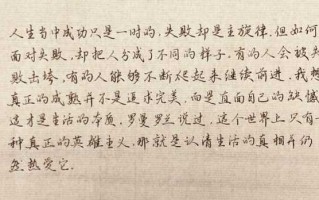 人生当中成功只是一时的,失败却是主旋律.但如何
面对失败,却把人分成了不同的样子,有的人会被失
败击垮,有的人能够不断爬起来继续前进,我想
真正的成熟并不是追求完美,而是直面自己的缺憾
这才是生活的本质,罗曼罗兰说过,这个世界上只有一
种真正的英雄主义.那就是认清生活的真相并仍
然热爱它.